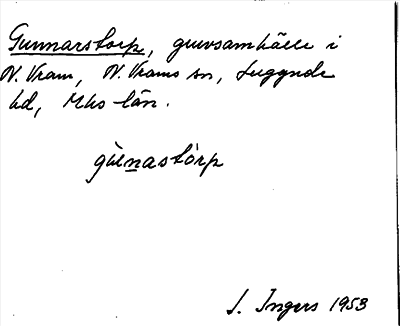 Gunnarstorp, gruvsamhälle i
N. Vram, N. Vrams sn, Luggude
hd, Mhs län.
gùnastòrp
I. Ingers 1953